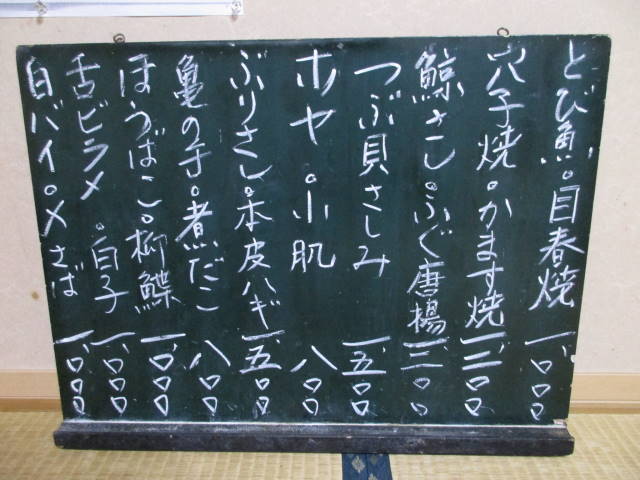 とび魚。目春焼 一、〇〇〇
穴子焼。かます焼 一、二〇〇
鯨さし。ふぐ唐揚 一、三〇〇
つぶ貝さしみ 一、五〇〇
ホヤ。小肌 八〇〇
ぶりさし。本皮ハギ 一、五〇〇
亀の手。煮だこ 八〇〇
ほうばこ。柳鰈 一、〇〇〇
舌ビラメ。白子 一、〇〇〇
白バイ。〆さば 一、〇〇〇